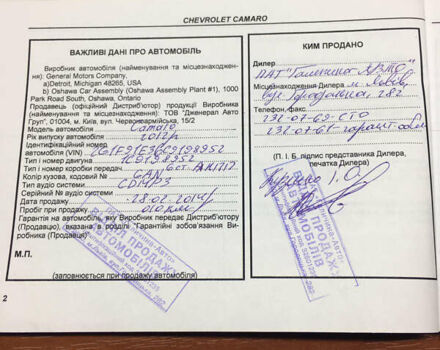 CHEVROLET CAMARO
ВАЖЛИВІ ДАНІ ПРО АВТОМОБІЛЬ
Виробник автомобіля (найменування та місцезнаходжен-
ня): General Motors Company,
a)Detroit, Michigan 48265, USA
b) Oshawa Car Assembly (Oshawa Assembly Plant #1), 1000
Park Road South, Oshawa, Ontario
Продавець (офіційний Дистриб'ютор) продукції Виробника
(найменування та місцезнаходження): ТОВ "Дженерал Авто
Груп", 01004, м. Київ, вул. Червоноармійська, 15/2
Модель автомобіля Camaro
Рік випуску автомобіля 2012
Ідентифікаційний номер
автомобіля (VIN)
Тип і номер двигуна
Тип і номер коробки передач 6ст. АКПП
Колір кузова, кодовий № GAN
Тип аудіо системи CDMP3
Серійний № аудіо системи
Дата продажу 28.02.2014
Пробіг при продажу 010 км
Гарантія на автомобіль, яку Виробник передає Дистриб'ютору
(Продавцю), вказана в розділі "Гарантійні зобов'язання Ви-
робника (Продавця)
М.П.
(заповнюється при продажу автомобіля)
КИМ ПРОДАНО
Дилер
ПАТ "Галичина Авто"
Місцезнаходження Дилера м. Львів
вул. Городоцька, 282
Телефон, факс
232-07-69-СТО
232-07-61-гарант.
(П. І. Б., підпис представника Дилера,
печатка Дилера)
ВІДДІЛ ПРОДАЖУ
АВТОМОБІЛІВ
ВІДДІЛ ПРОДАЖУ
АВТОМОБІЛІВ
2